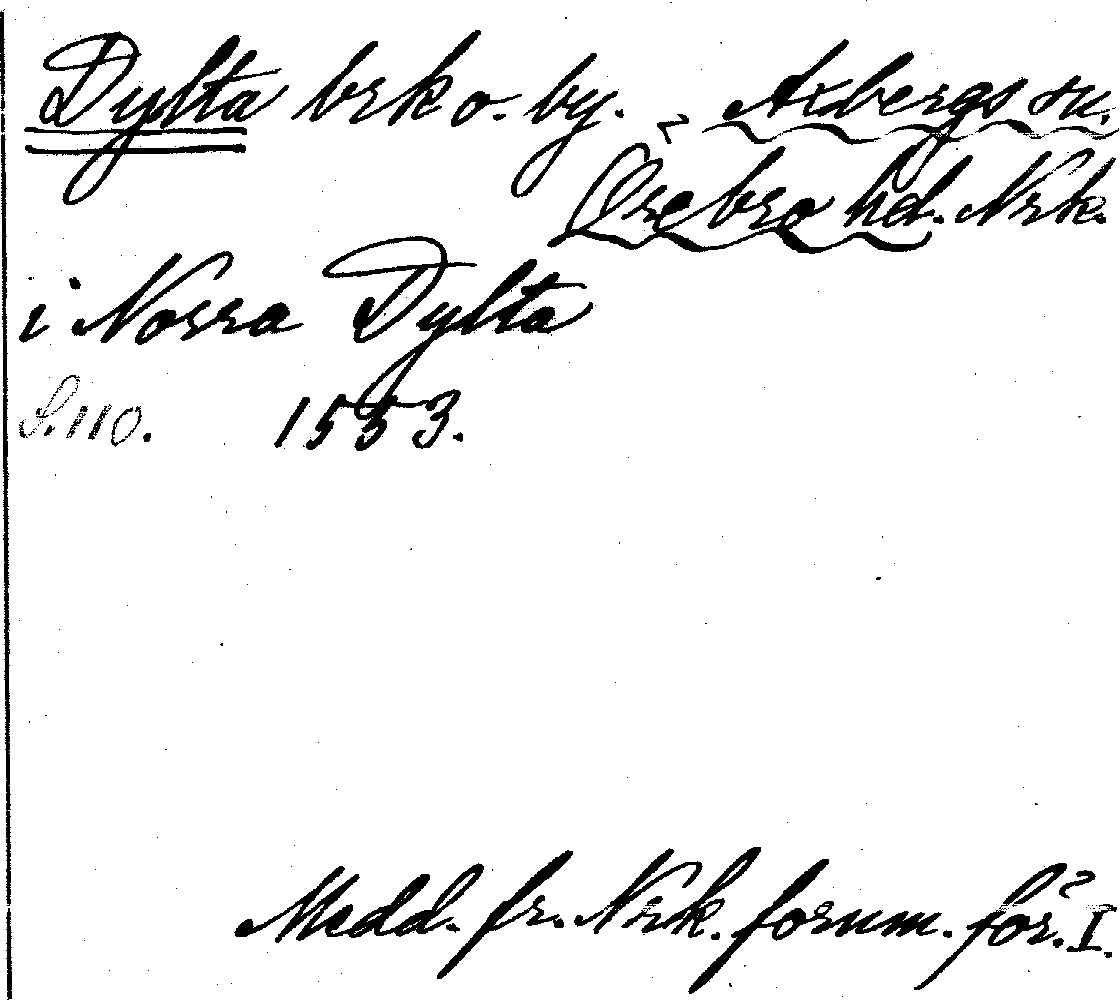 Dylta brk o. by. Axbergs sn.
Örebro hd. Nrk.
i Norra Dylta
S. 110. 1553.
Medd. fr. Nrk. fornm. för. I.